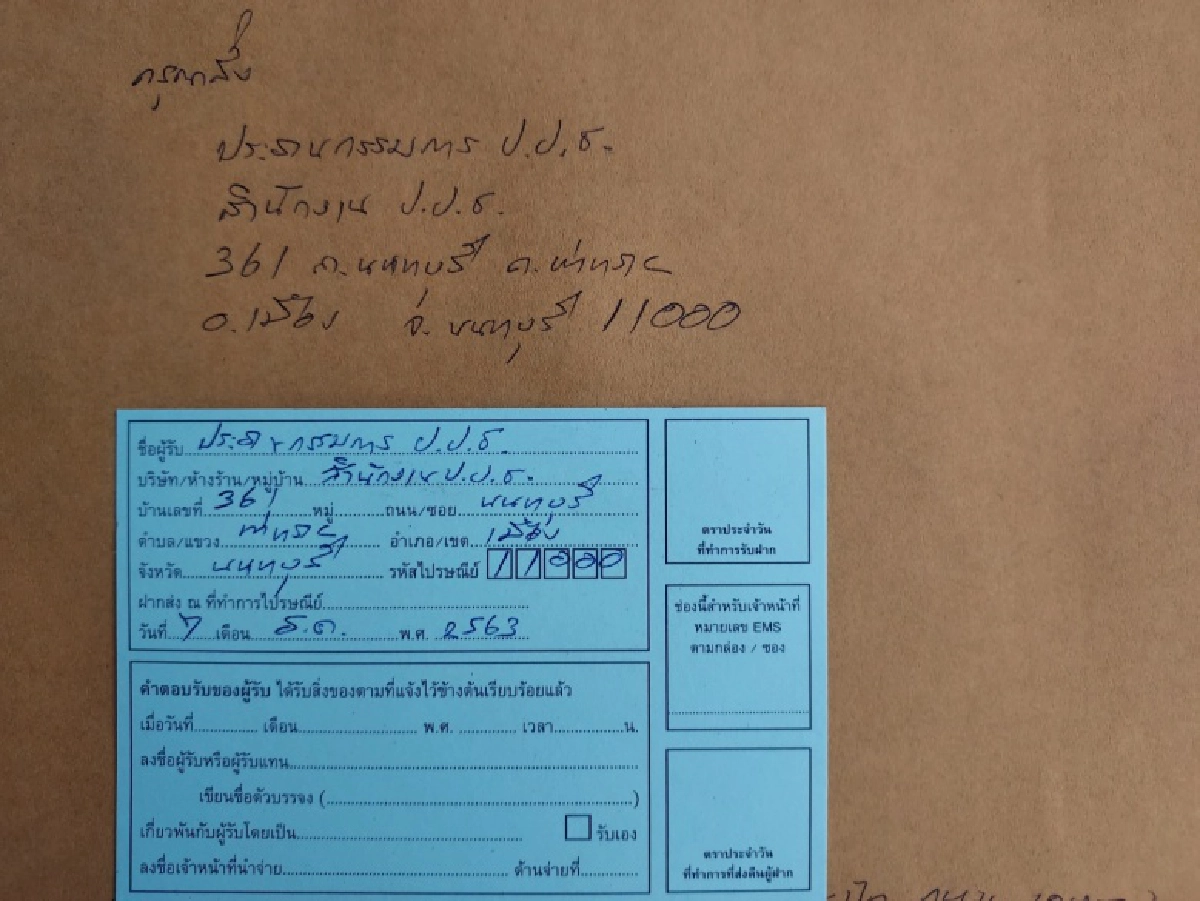 กรุณาส่ง
ประธานกรรมการ ป.ป.ช.
สำนักงาน ป.ป.ช.
361 ถ.นนทบุรี ต.ท่าทราย
อ.เมือง จ.นนทบุรี 11000
ชื่อผู้รับ ประธานกรรมการ ป.ป.ช.
บริษัท/ห้างร้าน/หมู่บ้าน สำนักงาน ป.ป.ช.
บ้านเลขที่ 361 หมู่ ถนน/ซอย นนทบุรี
ตำบล/แขวง ท่าทราย อำเภอ/เขต เมือง
จังหวัด นนทบุรี รหัสไปรษณีย์ 11000
ฝากส่ง ณ ที่ทำการไปรษณีย์
วันที่ 7 เดือน ธ.ค. พ.ศ. 2563
ตราประจำวัน
ที่ทำการรับฝาก
ช่องนี้สำหรับเจ้าหน้าที่
หมายเลข EMS
ตามกล่อง / ซอง
คำตอบรับของผู้รับ ได้รับสิ่งของตามที่แจ้งไว้ข้างต้นเรียบร้อยแล้ว
เมื่อวันที่ เดือน พ.ศ. เวลา น.
ลงชื่อผู้รับหรือผู้รับแทน
เขียนชื่อตัวบรรจง ( )
เกี่ยวพันกับผู้รับโดยเป็น รับเอง
ลงชื่อเจ้าหน้าที่นำจ่าย ด้านจ่ายที่
ตราประจำวัน
ที่ทำการที่ส่งคืนผู้ฝาก